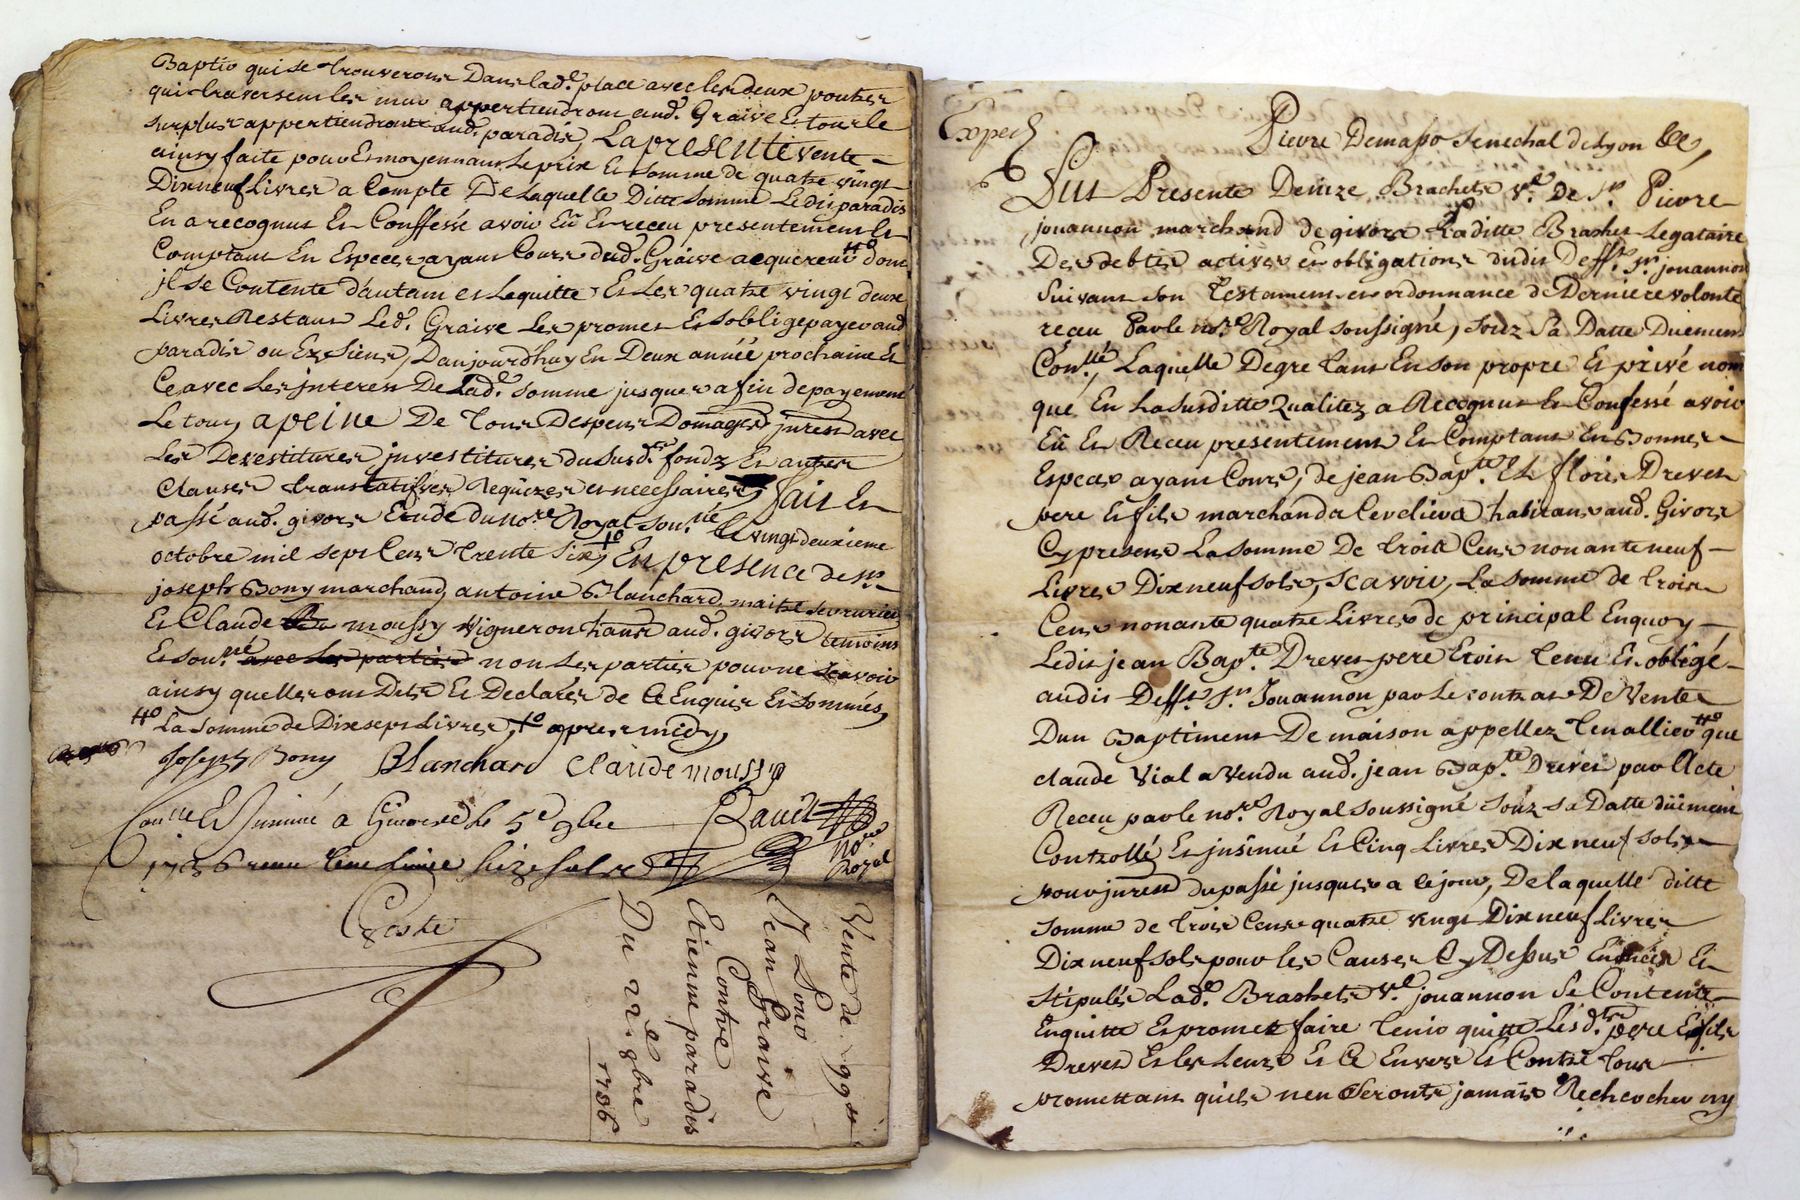 Baptie qui se trouverons Dans lad.e place avec les deux poutres
qui traversent les murs appertiendrons aud. Graive Et tour le
surplus appertiendronts aud. paradis, La presente vente
ainsy faite pour Et moyennant le prix Et somme de quatre vingt
Dixneuf Livres a Compte De laquelle Ditte somme Ledit paradis
En a recognut Et Conffessé avoir Eû Et receu presentement Et
Comptant En Especes ayant Cours dud. Graive acquereur dont
jl se Contente d'autant et Lequitte Et Les quatre vingt deux
Livres Restant Led. Graive Les promet Et soblige payer aud
paradis ou Ez siens, Daujourd'huy En Deux année prochaine Et
Ce avec Les jnterest De Lad.e somme jusques a fin de payement
Le tout apeine De Tous Despens Domages jnterest avec
Les Devestitures jnvestitures du susd. fondz Et autres
Clauses translatifves Requizes et necessaires, fait Et
passé aud. givors Etude du no.re Royal sou.né Le vingtdeuxieme
octobre mil sept Cent trente six, En presence de sr
joseph Bony marchand, antoine Blanchard maitre serrurier
Et Claude moussy vigneron hants aud. givors temoins
Et sou.né avec Les parties non Les parties pour ne scavoir
ainsy quelles ont Dits Et Declarés de Ce Enquis Et sommés,
La somme de Dixsept Livres, apres midy,
Joseph Bony Blanchard Claude moussy
Con.lle Et jnsinué a Givors Le 5e 9bre
1736 receu seize sols
no.re
Royal
Coste
Vente de 99 #
Pour
Jean Graive
Contre
Etienne paradis
Du 22e 8bre
1736
Exped
Pierre Demasso senechal de Lyon &c,
Fut Presente Denize Brachet v.e De Sr. Pierre
jouannon marchand de givors Laditte Brachet Legataire
Des debtes actives et obligations dudit Defft. sr. jouannon
suivant son Testament et ordonnance de Derniere volonté
receu Par le no.re Royal soussigné, souz sa Datte Duement
Con.llé, Laquelle De gre tant En son propre Et privé nom
que En La susditte Qualitez a Recognut Et Confessé avoir
Eû Et Receu presentement Et Comptant En Bonnes
Especes ayant Cours, de jean Bap.te Et floris Drevet
pere Et fils marchands habitans aud. Givors
Cy presens La somme De trois Cens nonante neuf
Livres Dixneuf sols, scavoir, La somme de trois
Cens nonante quatre Livres de principal En quoy
Ledit jean Bap.te Drevet pere Etoit tenu Et obligé
audit Defft. Sr. Jouannon par Le contrat De Vente
Dun Baptiment De maison appellez que
claude Vial a Vendu aud. jean Bap.te Drevet par Acte
Receu par le no.re Royal soussigné souz sa Datte düement
Controllé Et jnsinué Et Cinq Livres Dixneuf sols
pour jnterest du passé jusques a ce jour, De laquelle ditte
somme de trois Cens quatre vingt Dixneuf Livres
Dixneuf sols pour Les Causes Cy Dessus Et
stipulés Lad.e Brachet v.e jouannon se Contente
Enquitte Et promet faire tenir quitte Lesd. pere Et fils
Drevet Et les Leurs Et Ce Envers Et Contre tous
promettant quils nen seronts jamais Recherchez ny